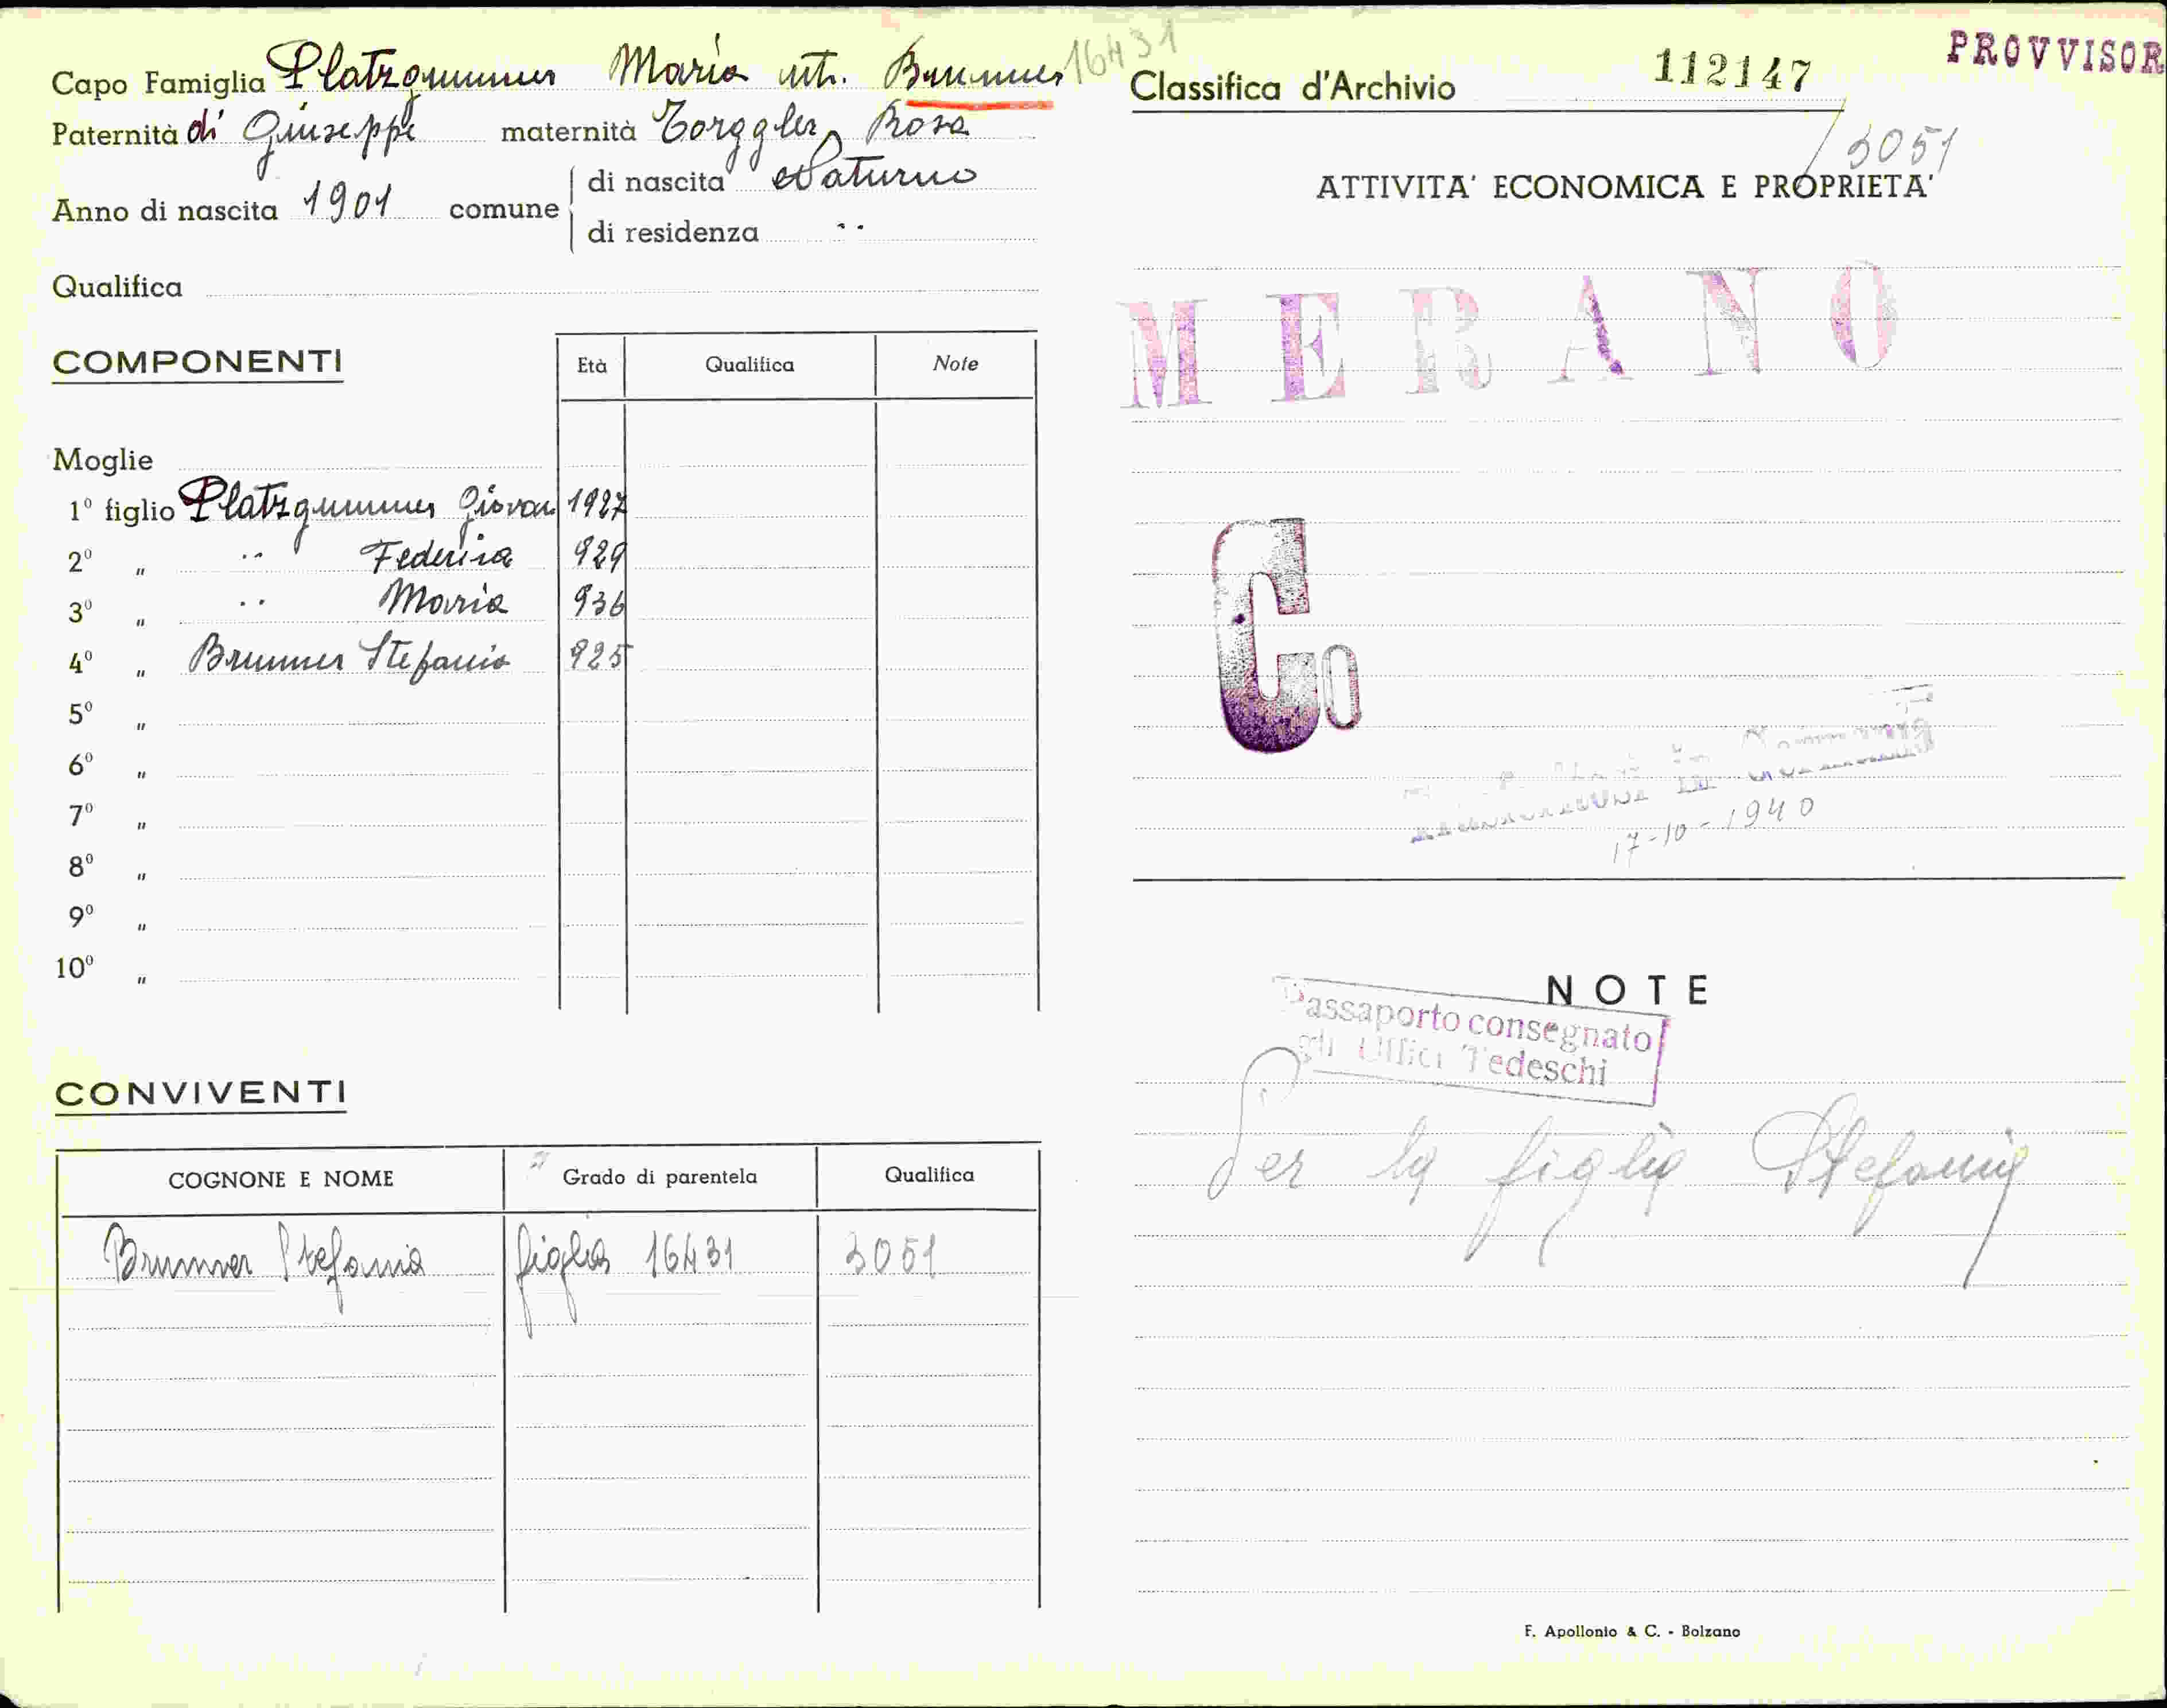 Capo Famiglia Platzgummer Maria nt. Brunner 16431
Paternità di Giuseppe maternità Torggler Rosa
Anno di nascita 1901 comune di nascita Naturno
di residenza "
Qualifica
COMPONENTI
Età Qualifica Note
Moglie
1º figlio Platzgummer Giovan 1927
2º " " Federica 929
3º " " Maria 936
4º " Brunner Stefania 925
5º "
6º "
7º "
8º "
9º "
10º "
CONVIVENTI
COGNONE E NOME Grado di parentela Qualifica
Brunner Stefania figlia 16431 3051
PROVVISOR
Classifica d'Archivio 112147
/3051
ATTIVITA' ECONOMICA E PROPRIETA'
MERANO
Co
17-10-1940
NOTE
Passaporto consegnato
gli Uffici Tedeschi
Per la figlia Stefania
F. Apollonio & C. - Bolzano